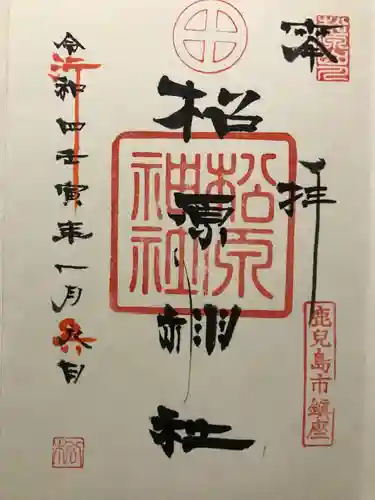 奉拝
鹿児島市鎮座
松原神社
松原神社
令和四壬寅年一月六日
松